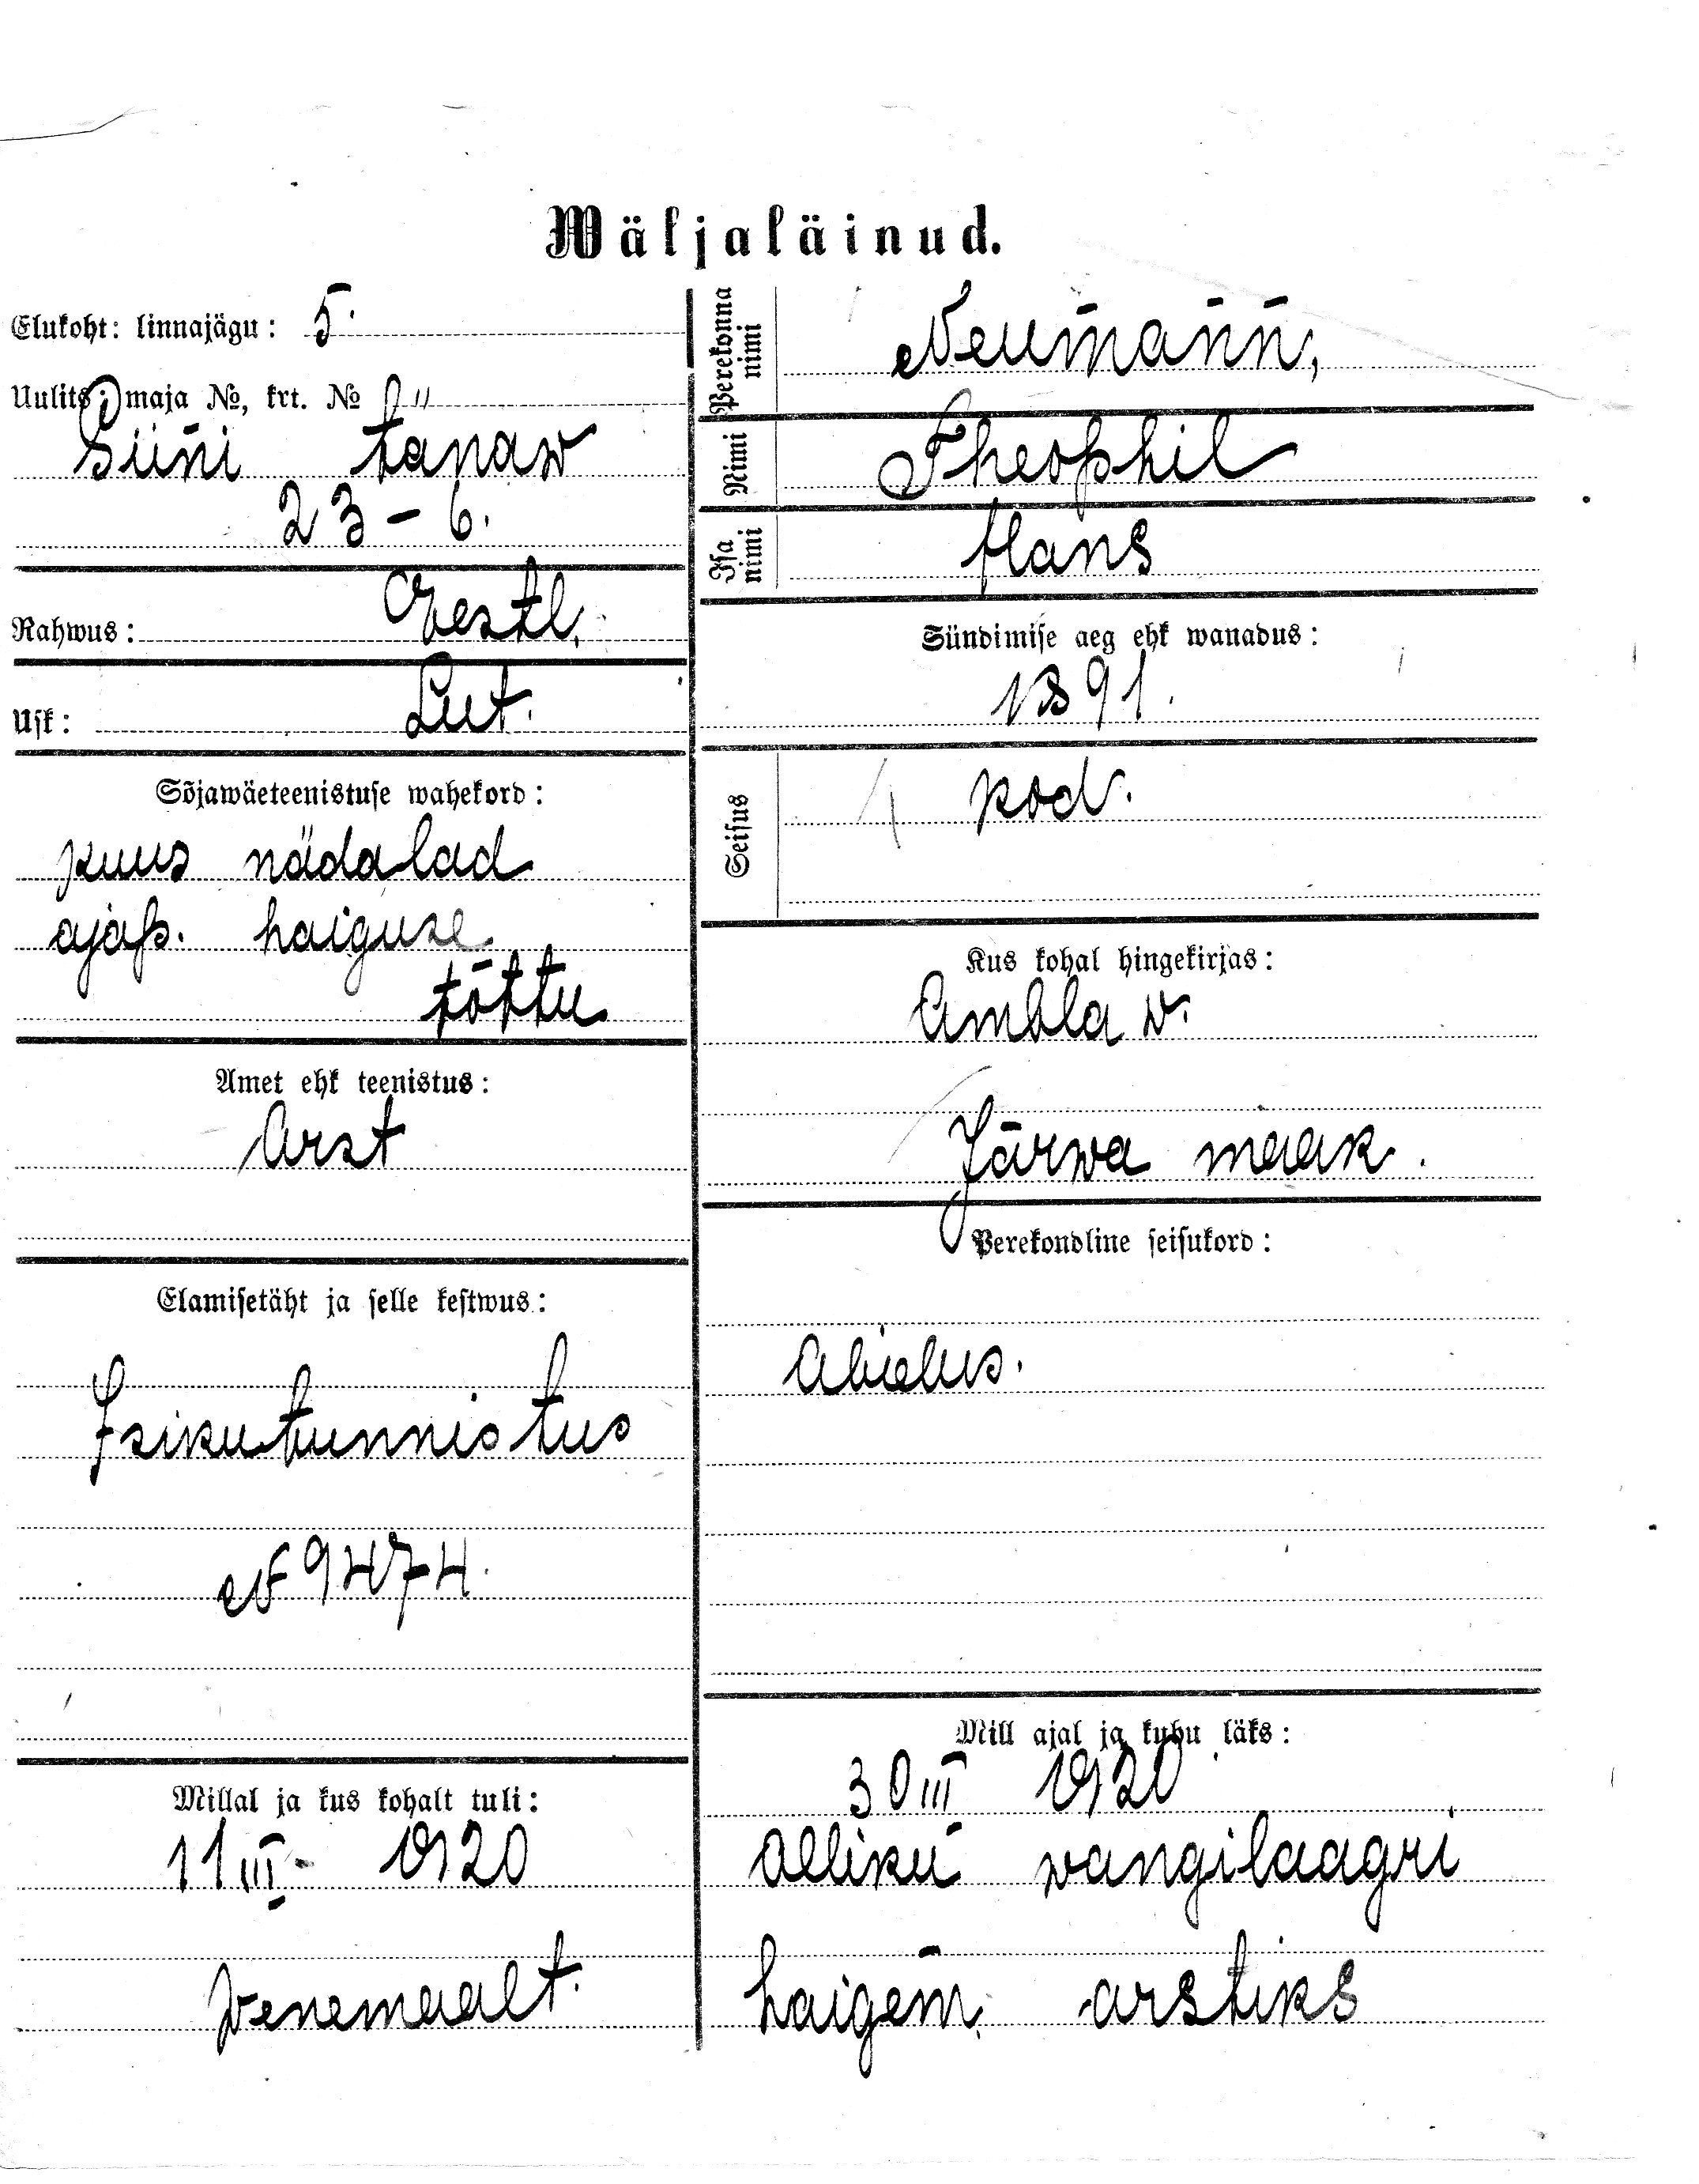 Wäljaläinud.
Elukoht: linnajägu: 5.
Uulits, maja №, krt. №
Siini tänaw
23 - 6.
Rahwus: Eestl.
Usk: Lut.
Sõjawäeteenistuse wahekord:
kuus nädalad
ajap. haiguse
tõttu
Amet ehk teenistus:
Arst
Elamisetäht ja selle kestwus:
Isikutunnistus
№ 9474.
Millal ja kus kohalt tuli:
11 III - 1920
Wenemaalt.
Perekonna nimi
Neumann,
Nimi
Theophil
Isa nimi
Hans
Sündimise aeg ehk wanadus:
1891.
Seisus
kod.
Kus kohal hingekirjas:
Ambla w.
Järwa maak.
Perekondline seisukord:
Abielus.
Mill ajal ja kuhu läks:
30 III 1920
Alliku wangilaagri
haigem. arstiks